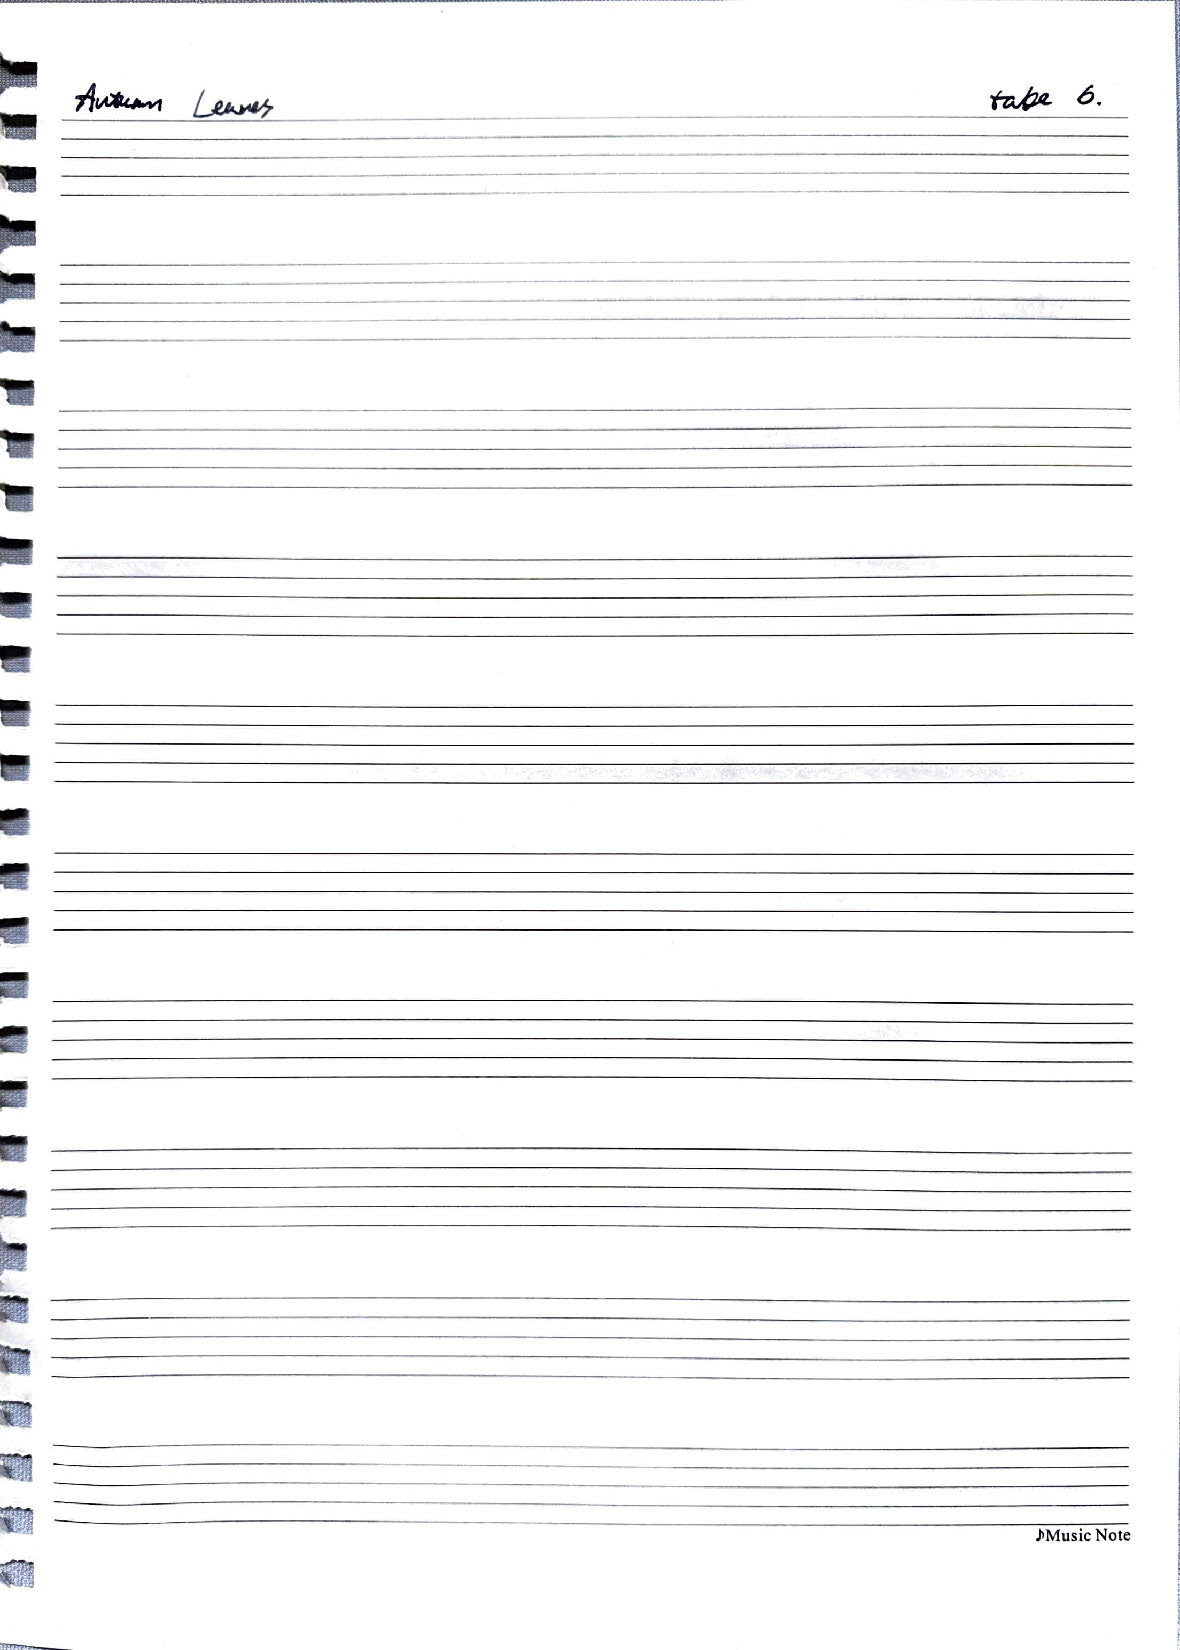 Autumn Leaves take 6.
♪Music Note